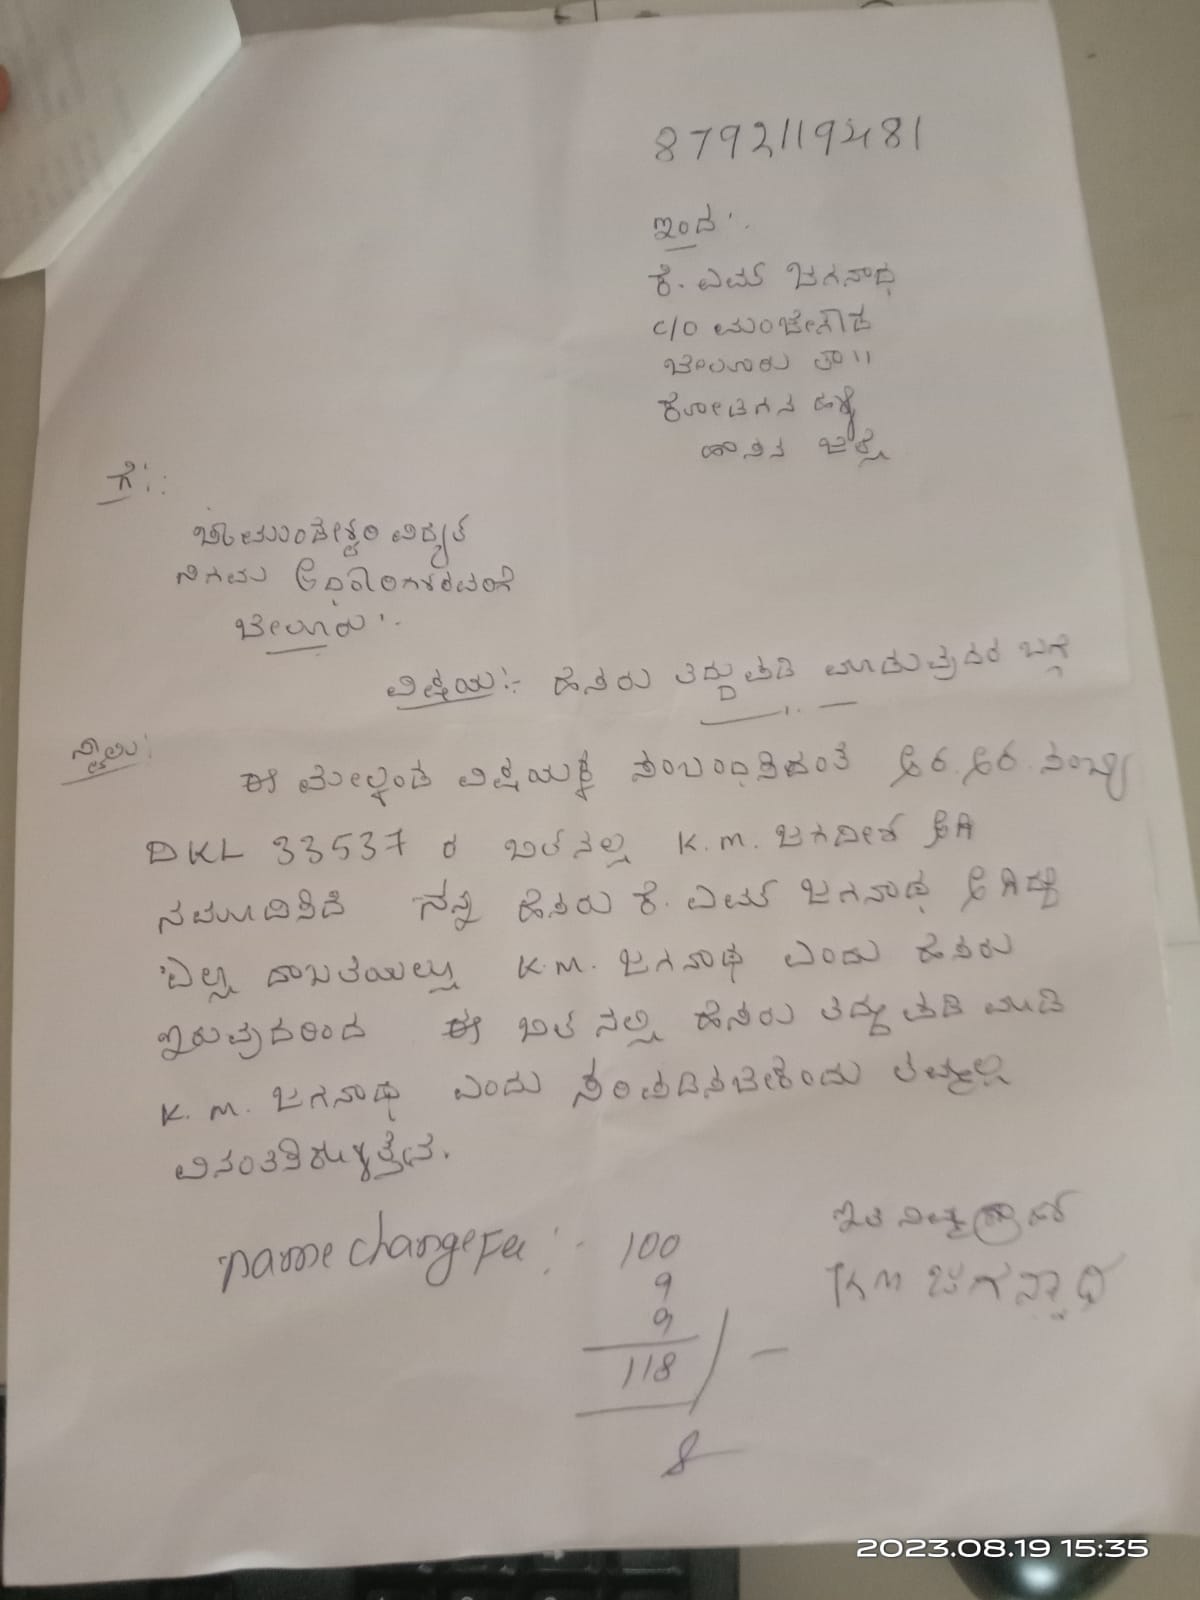 8792119481
ಇಂದ:.
ಕೆ. ಎಮ್ ಜಗನಾಥ
c/o ಮಂಜೇಗೌಡ
ಬೇಲೂರು ತಾ॥
ಕೋಡಗನ ಹಳ್ಳಿ
ಹಾಸನ ಜಿಲ್ಲೆ
ಗೆ:.
ಚಾಮುಂಡೇಶ್ವರಿ ವಿದ್ಯುತ
ನಿಗಮ
ಬೇಲೂರು:.
ವಿಷಯ:- ಹೆಸರು ತಿದ್ದುಪಡಿ ಮಾಡುವುದರ ಬಗ್ಗೆ
ಈ ಮೇಲ್ಕಂಡ ವಿಷಯಕ್ಕೆ ಸಂಬಂಧಿಸಿದಂತೆ ಆರ.ಆರ.ಸಂಖ್ಯೆ
DKL 33537 ರ ಬಿಲನಲ್ಲಿ K.M. ಜಗದೀಶ ಆಗಿ
ನಮೂದಿಸಿದೆ ನನ್ನ ಹೆಸರು ಕೆ. ಎಮ್ ಜಗನಾಥ ಆಗಿದ್ದು
ಎಲ್ಲಾ ದಾಖಲೆಯಲ್ಲು K.M. ಜಗನಾಥ ಎಂದು ಹೆಸರು
ಇರುವುದರಿಂದ ಈ ಬಿಲ ನಲ್ಲಿ ಹೆಸರು ತಿದ್ದುಪಡಿ ಮಾಡಿ
K. M. ಜಗನಾಥ ಎಂದು ಸರಿಪಡಿಸಬೇಕೆಂದು ತಮ್ಮಲ್ಲಿ
name change Fee :- 100
9
9
118/-
ಇತಿ ನಿಮ್ಮ
KM ಜಗನ್ನಾಥ
2023.08.19 15:35